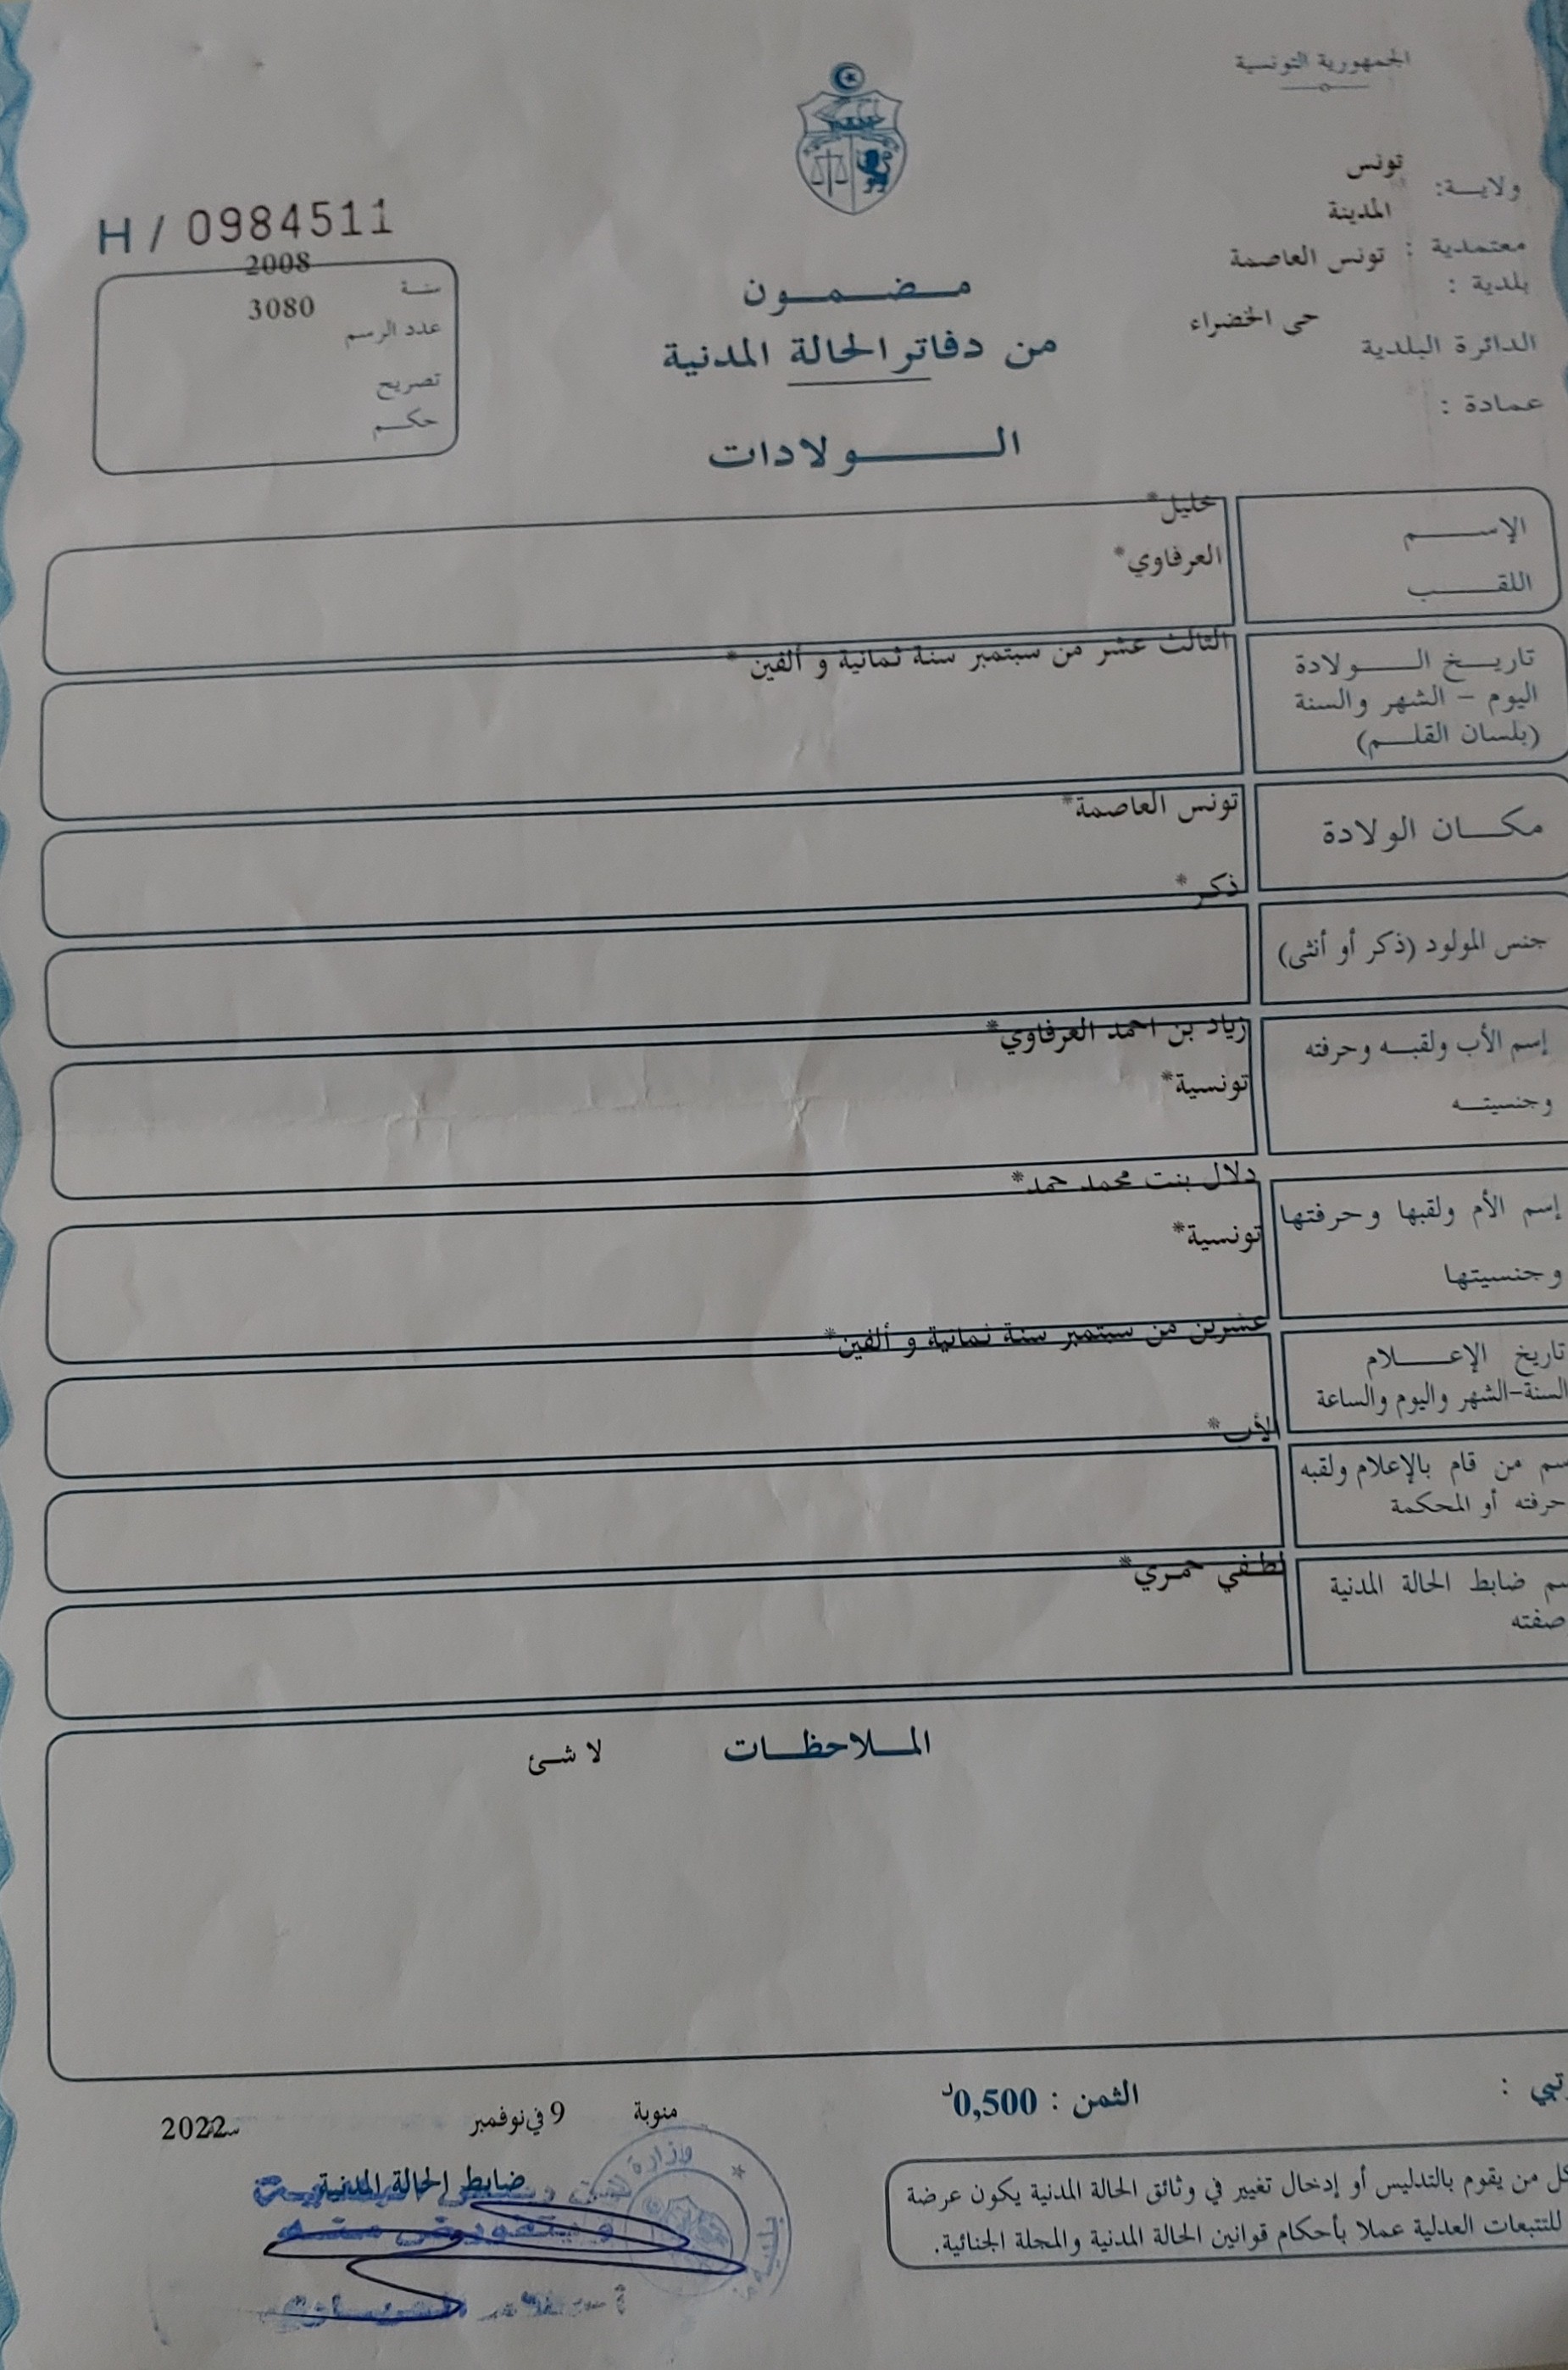 الجمهورية التونسية
ولايـــة: تونس
المدينة
معتمدية : تونس العاصمة
بلدية :
الدائرة البلدية حى الخضراء
عمادة :
H / 0984511
سنـة 2008
عدد الرسم 3080
تصريح
حكــم
مـضـمــون
من دفاتر الحالة المدنية
الــــولادات
الإســــم خليل*
اللقــــب العرفاوي*
تاريــخ الــــولادة الثالث عشر من سبتمبر سنة ثمانية و ألفين *
اليوم - الشهر والسنة
(بلسان القلــم)
مكــان الولادة تونس العاصمة*
ذكر*
جنس المولود (ذكر أو أنثى)
إسم الأب ولقبــه وحرفته زياد بن احمد العرفاوي*
وجنسيتــه تونسية*
إسم الأم ولقبها وحرفتها دلال بنت محمد حمد*
وجنسيتها تونسية*
تاريخ الإعــــلام عشرين من سبتمبر سنة ثمانية و ألفين*
السنة-الشهر واليوم والساعة
الأب*
سم من قام بالإعلام ولقبه
حرفته أو المحكمة
سم ضابط الحالة المدنية لطفي حمري*
صفته
المــلاحظــات لا شئ
الثمن : 0,500د
منوبة 9 في نوفمبر سنة 2022
ضابط الحالة المدنية
وبتفويض منه
وزارة
كل من يقوم بالتدليس أو إدخال تغيير في وثائق الحالة المدنية يكون عرضة
للتتبعات العدلية عملا بأحكام قوانين الحالة المدنية والمجلة الجنائية.